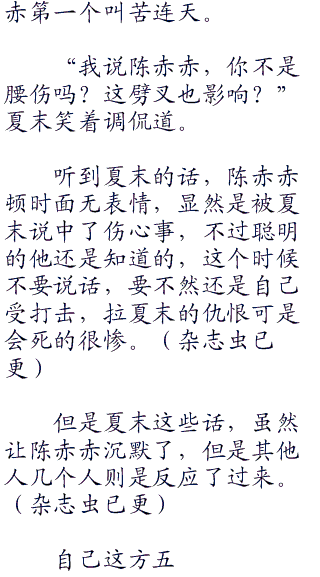 赤第一个叫苦连天。
“我说陈赤赤，你不是
腰伤吗？这劈叉也影响？”
夏末笑着调侃道。
听到夏末的话，陈赤赤
顿时面无表情，显然是被夏
末说中了伤心事，不过聪明
的他还是知道的，这个时候
不要说话，要不然还是自己
受打击，拉夏末的仇恨可是
会死的很惨。（杂志虫已
更）
但是夏末这些话，虽然
让陈赤赤沉默了，但是其他
人几个人则是反应了过来。
（杂志虫已更）
自己这方五